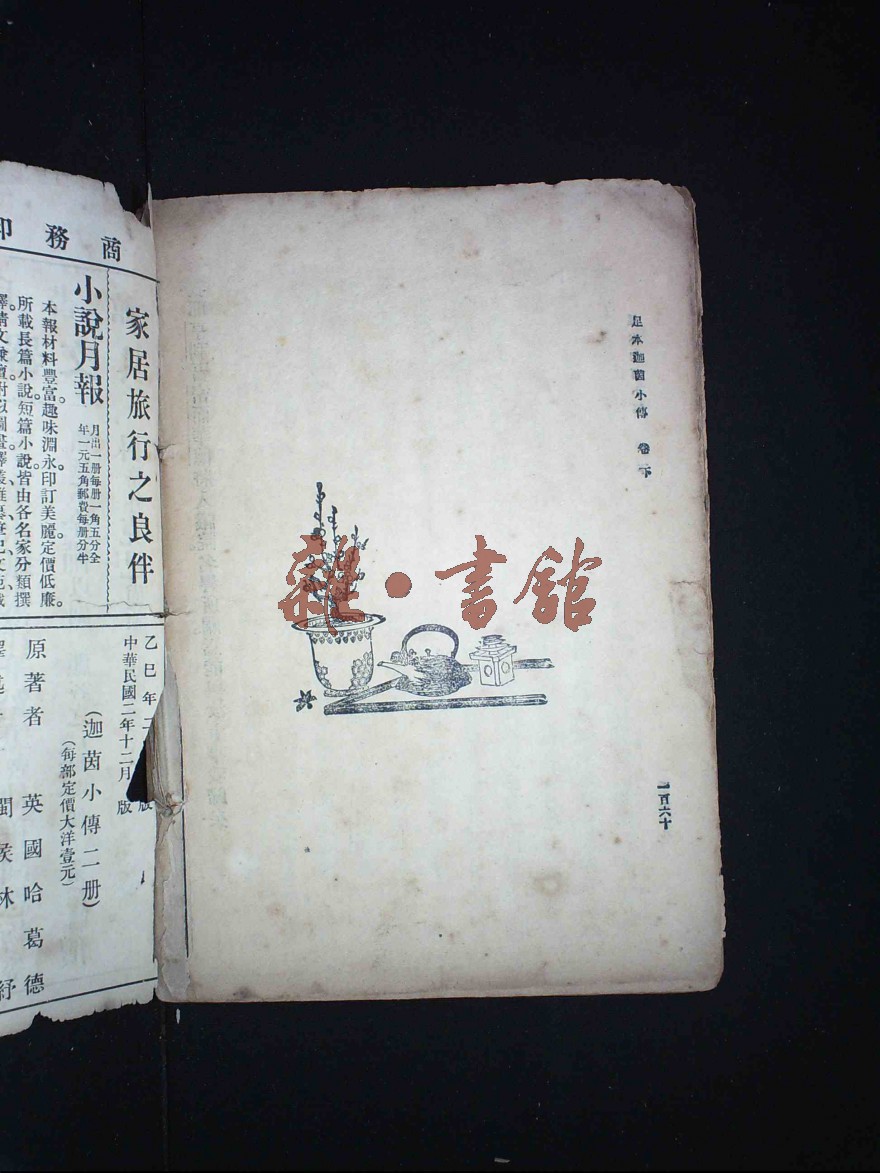 足本迦茵小傳 卷下
一百六十
雜·書館
商務印
家居旅行之良伴
小說月報
月出一册每册一角五分全
年一元五角郵費每册分半
本報材料豐富趣味淵永印訂美麗定價低廉。
所載長篇小說短篇小說皆由各名家分類撰
乙巳年二
版
中華民國二年十二月
版
(迦茵小傳二册)
(每部定價大洋壹元)
原著者 英國哈葛德
閩侯林紓